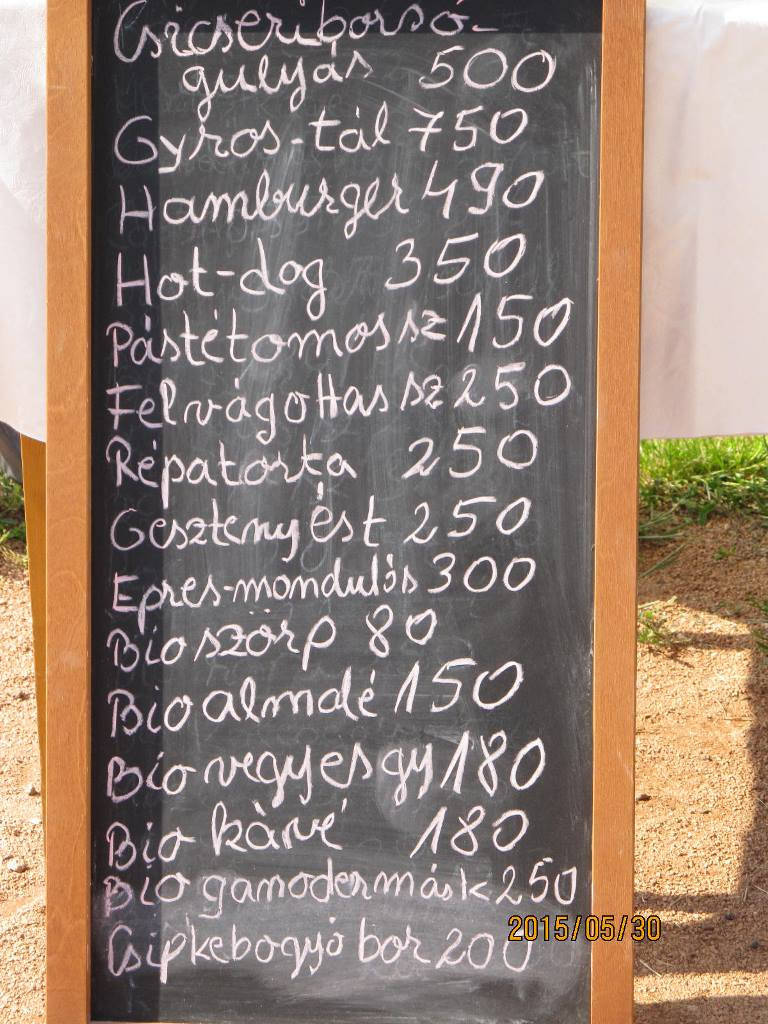 Csicseriborsó-
gulyás 500
Gyros-tál 750
Hamburger 490
Hot-dog 350
Pástétomos sz 150
Felvágottas sz 250
Répatorta 250
Gesztenyést 250
Epres-mondulás 300
Bio szörp 80
Bio almdé 150
Bio vegyes gy 180
Bio kàvé 180
Bio ganodermás k 250
Csipkebogyó bor 200
2015/05/30